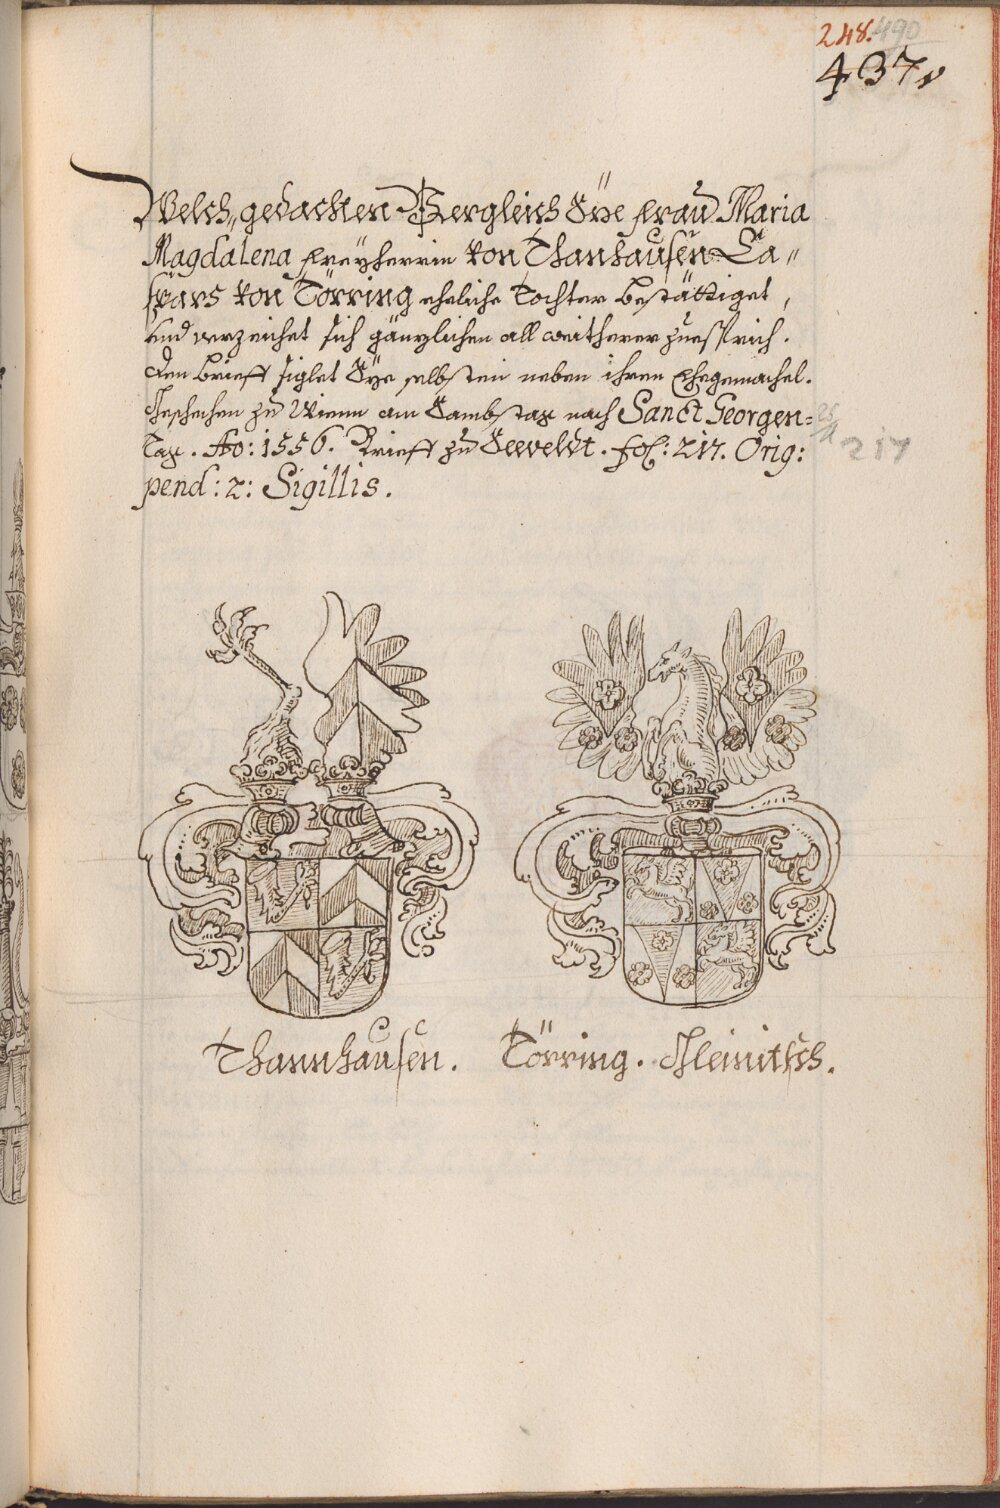 248. 490
437
Welch gedachten Vergleich Sÿe Frau Maria
Magdalena Freyherrin von Thanhausen Ca„
spars von Törring eheliche Tochter bestättiget,
und verzeichet sich gänzlichen all weitherer zuesprich.
den brieff siglet Sÿe selbsten neben ihren Ehegemachel.
Geschechen zu Wienn am Sambstag nach Sanct Georgen=
Tag. Ao: 1556. Brieff zu Seeveldt. fol: 217. Orig:
pend: 2: Sigillis.
25
217
Thannhausen.
Törring. Gleinitsch.